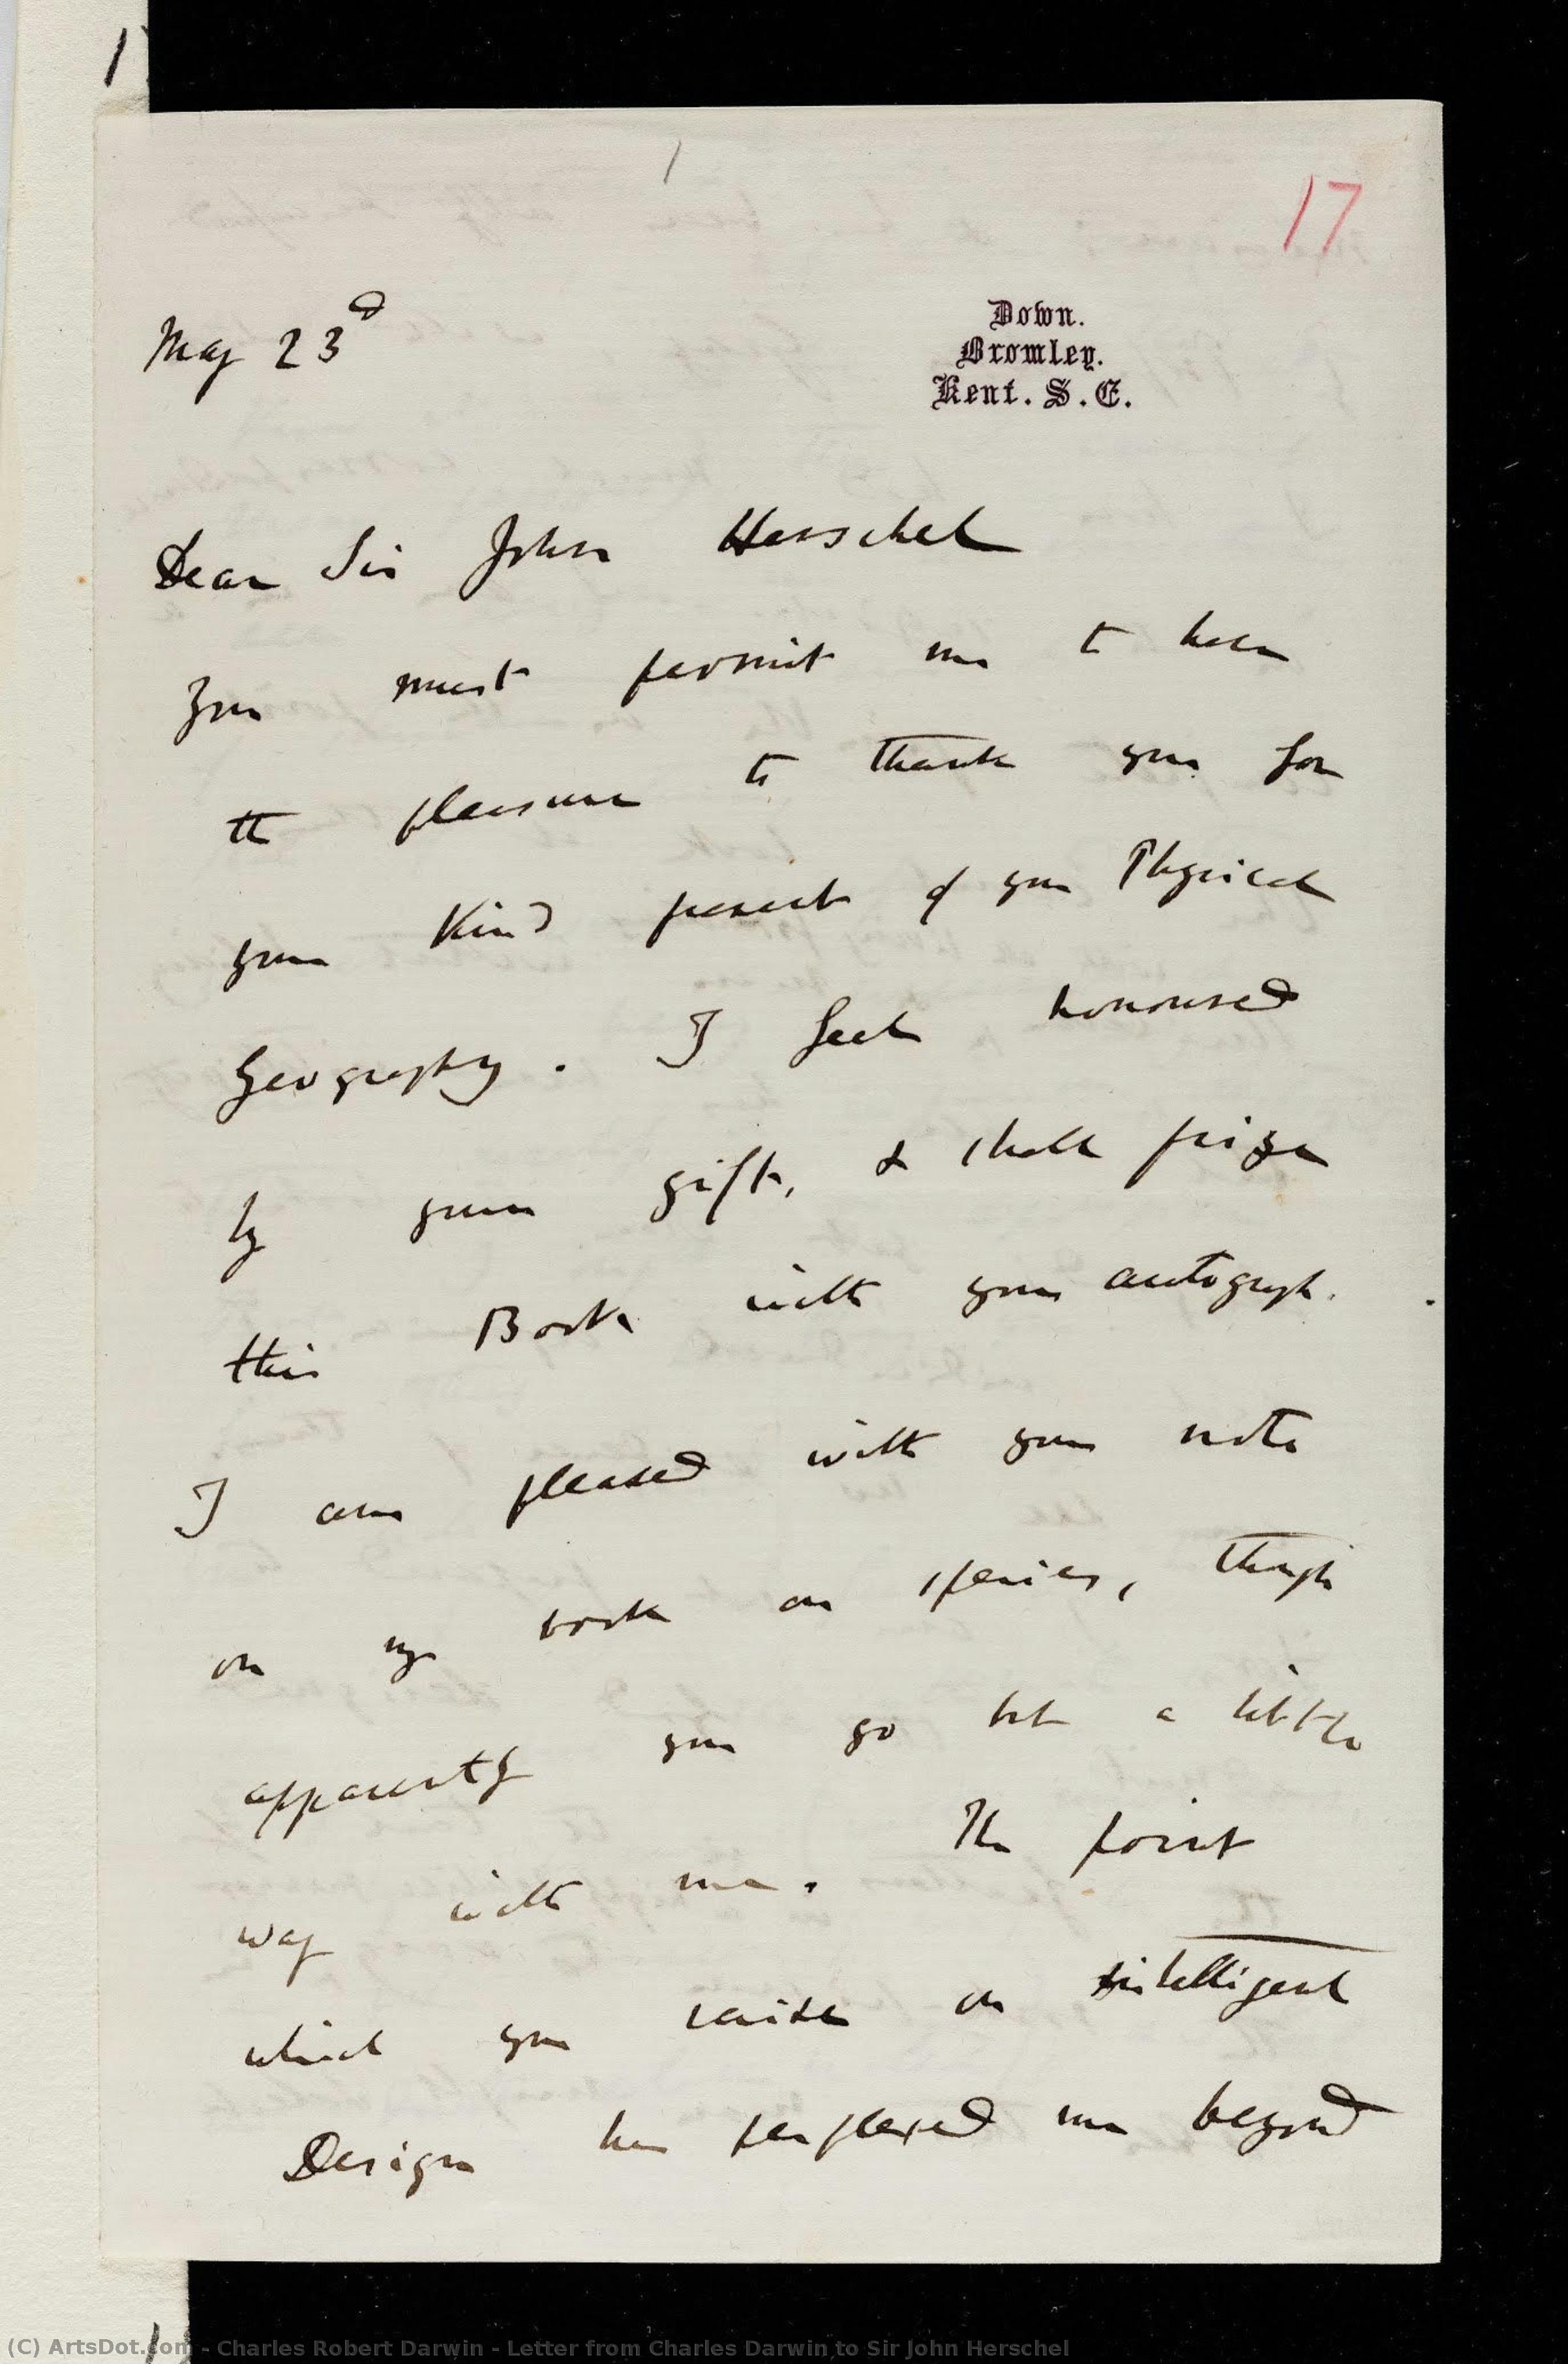 1
17
May 23d
Down.
Bromley.
Kent. S.E.
Dear Sir John Herschel
You must permit me to have
the pleasure to thank you for
your kind present of your Physical
Geography. I feel honoured
by your gift, & shall prize
this Book with your autograph.
I am pleased with your note
on my book on species, though
apparently you go but a little
way with me. The point
which you raise on intelligent
Design has perplexed me beyond
(C) ArtsDot.com - Charles Robert Darwin - Letter from Charles Darwin to Sir John Herschel